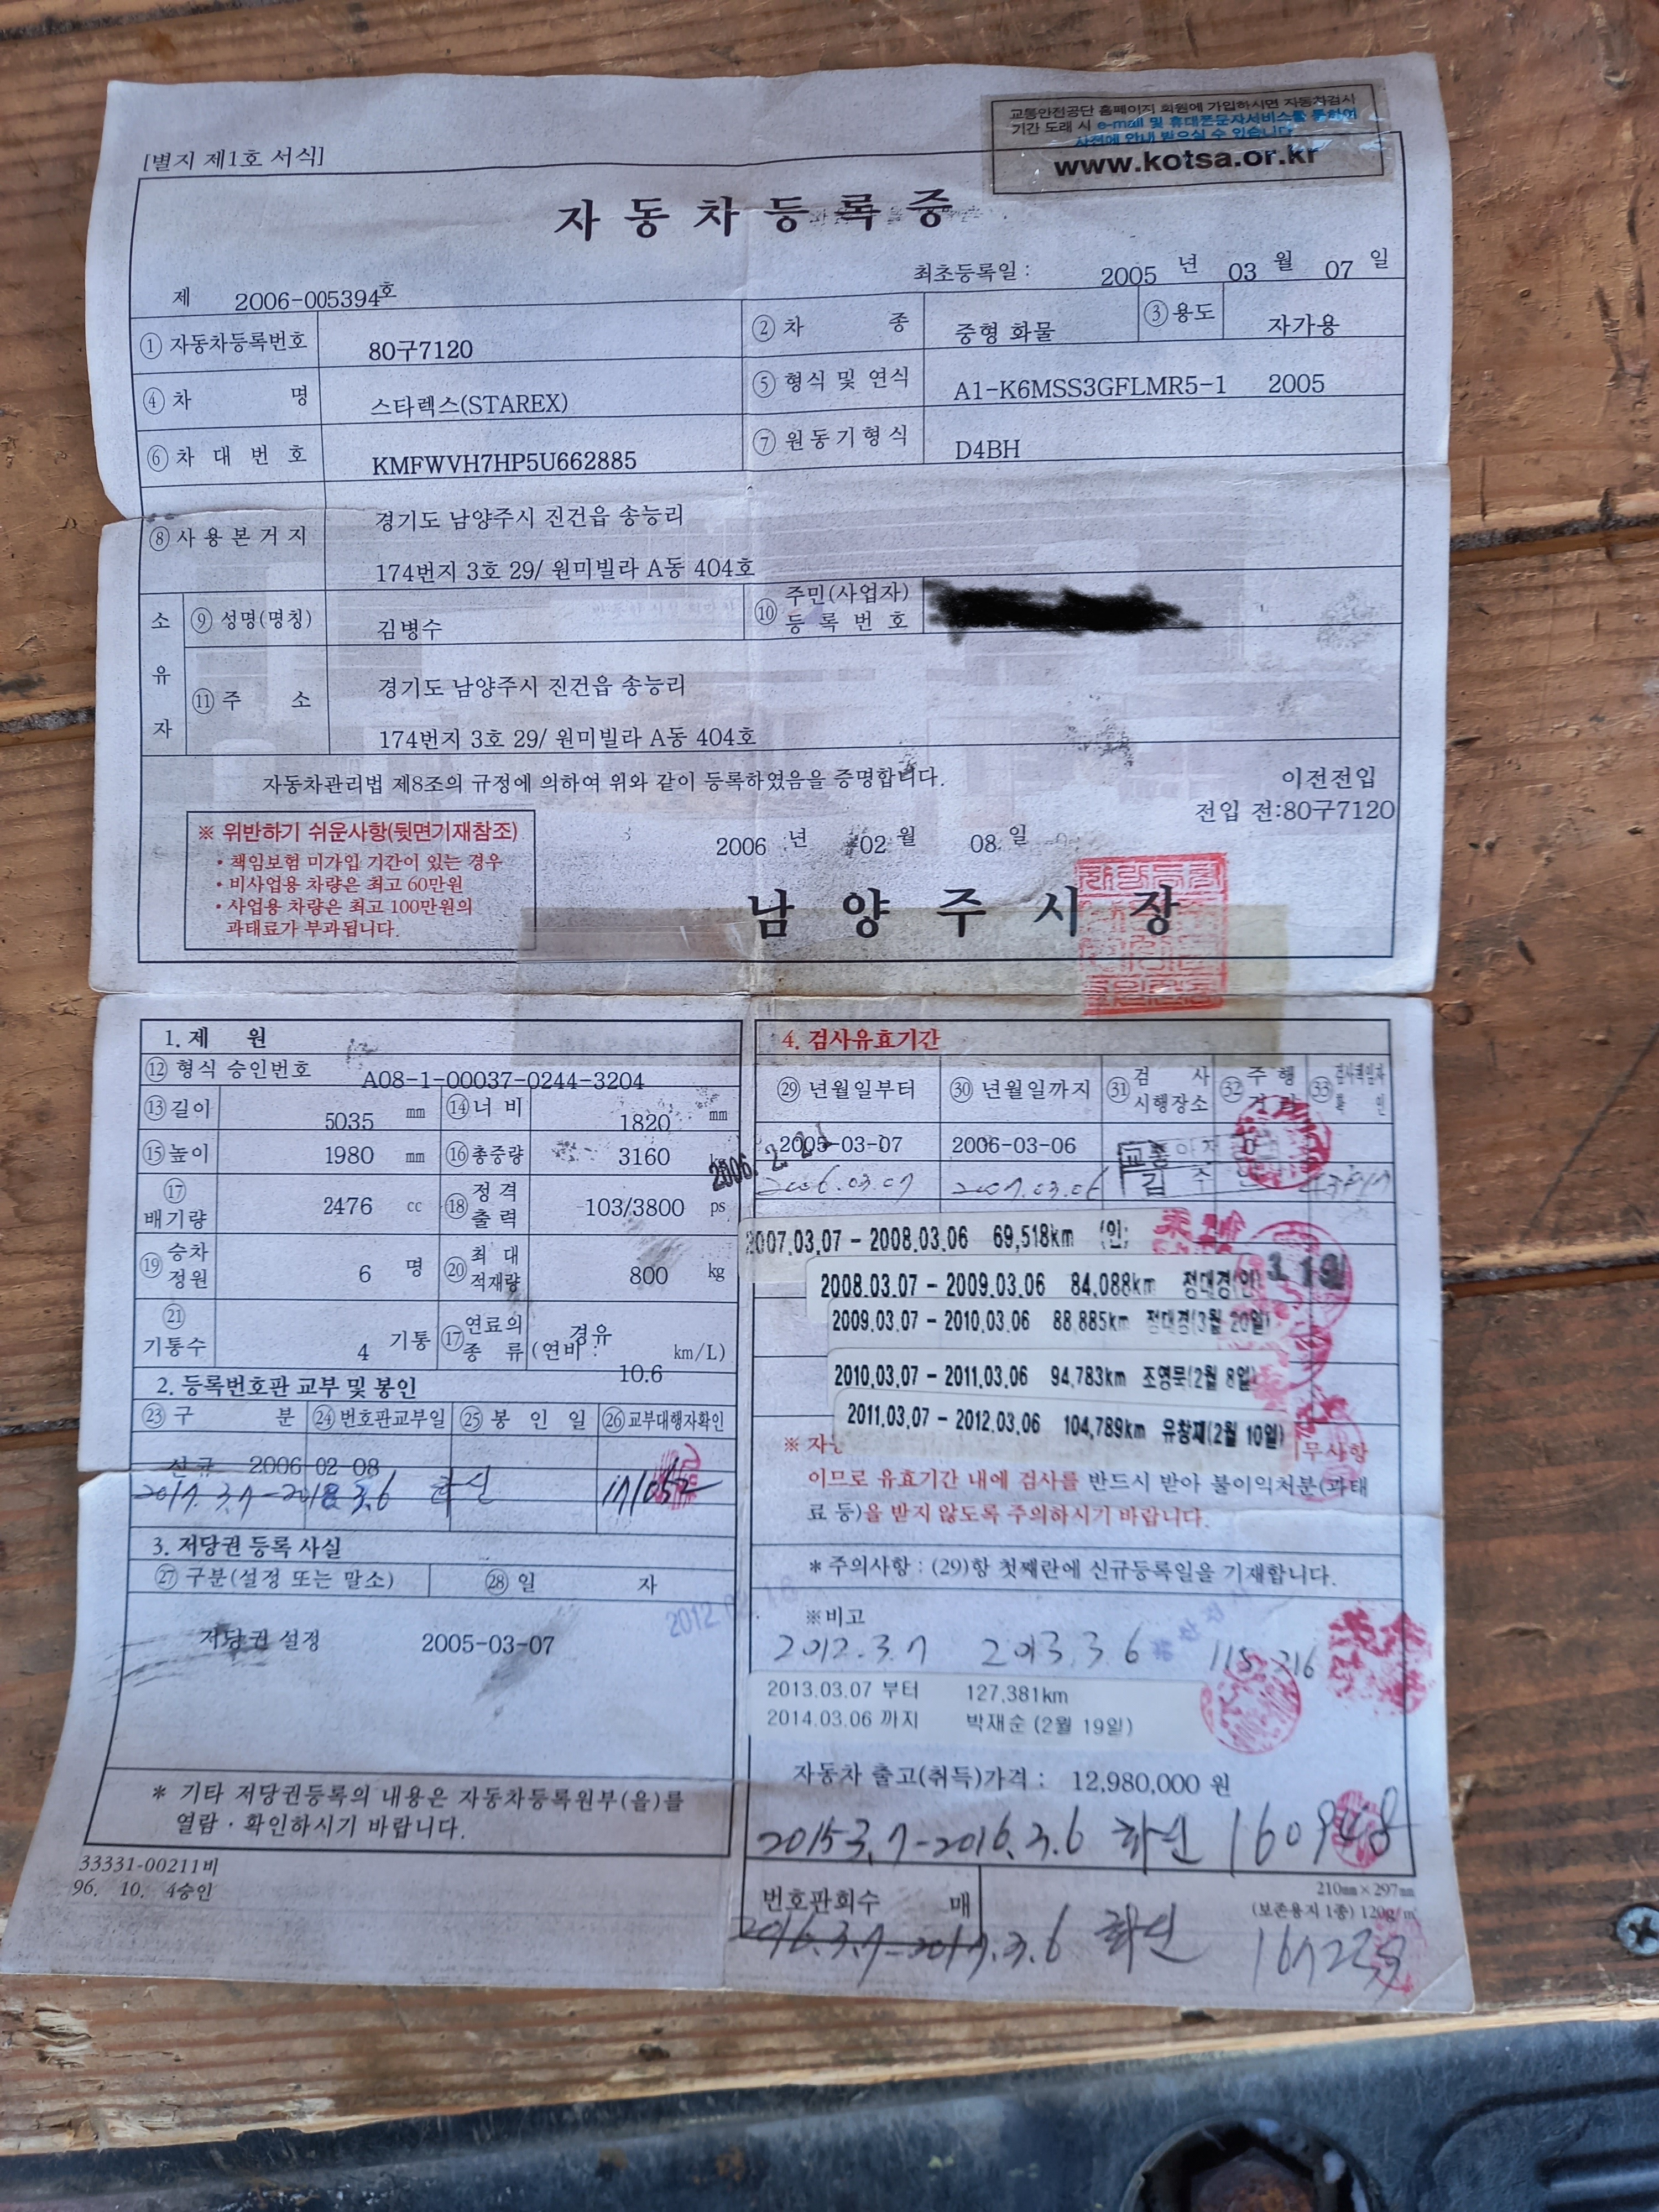 교통안전공단 홈페이지 회원에 가입하시면 자동차검사
기간 도래 시 e-mail 및 휴대폰문자서비스를 통하여
사전에 안내 받으실 수 있습니다
www.kotsa.or.kr
[별지 제1호 서식]
자동차등록증
제 2006-005394호
최초등록일 : 2005 년 03 월 07 일
① 자동차등록번호 80구7120 ② 차 종 중형 화물 ③ 용도 자가용
④ 차 명 스타렉스(STAREX) ⑤ 형식 및 연식 A1-K6MSS3GFLMR5-1 2005
⑥ 차 대 번 호 KMFWVH7HP5U662885 ⑦ 원동기형식 D4BH
⑧ 사용본거지 경기도 남양주시 진건읍 송능리
174번지 3호 29/ 원미빌라 A동 404호
소유자 ⑨ 성명(명칭) 김병수 ⑩ 주민(사업자) 등록번호
⑪ 주 소 경기도 남양주시 진건읍 송능리
174번지 3호 29/ 원미빌라 A동 404호
자동차관리법 제8조의 규정에 의하여 위와 같이 등록하였음을 증명합니다.
이전전입
전입 전:80구7120
※ 위반하기 쉬운사항(뒷면기재참조)
• 책임보험 미가입 기간이 있는 경우
• 비사업용 차량은 최고 60만원
• 사업용 차량은 최고 100만원의
과태료가 부과됩니다.
2006 년 02 월 08 일
남양주시장
1. 제 원
⑫ 형식 승인번호 A08-1-00037-0244-3204
⑬ 길이 5035 mm ⑭ 너 비 1820 mm
⑮ 높이 1980 mm ⑯ 총중량 3160 kg
⑰ 배기량 2476 cc ⑱ 정격출력 103/3800 ps
⑲ 승차정원 6 명 ⑳ 최대적재량 800 kg
㉑ 기통수 4 기통 ⑰ 연료의 종류 경유 (연비 : 10.6 km/L)
2. 등록번호판 교부 및 봉인
㉓ 구 분 ㉔ 번호판교부일 ㉕ 봉 인 일 ㉖ 교부대행자확인
신규 2006-02-08
2017.3.7-2018.3.6
3. 저당권 등록 사실
㉗ 구분(설정 또는 말소) ㉘ 일 자
저당권 설정 2005-03-07
* 기타 저당권등록의 내용은 자동차등록원부(을)를
열람 · 확인하시기 바랍니다.
33331-00211비
96. 10. 4승인
4. 검사유효기간
㉙ 년월일부터 ㉚ 년월일까지 ㉛ 검사 시행장소 ㉜ 주행거리 ㉝ 검사책임자 확인
2005-03-07 2006-03-06
2006.03.07 2007.03.06
2007.03.07 - 2008.03.06 69,518km (인)
2008.03.07 - 2009.03.06 84,088km 정대경(인)
2009.03.07 - 2010.03.06 88,885km 정대경(3월 20일)
2010.03.07 - 2011.03.06 94,783km 조영묵(2월 8일)
2011.03.07 - 2012.03.06 104,789km 유창재(2월 10일)
무사항
이므로 유효기간 내에 검사를 반드시 받아 불이익처분(과태
료 등)을 받지 않도록 주의하시기 바랍니다.
* 주의사항 : (29)항 첫째란에 신규등록일을 기재합니다.
※비고
2012.3.7 2013.3.6
2013.03.07 부터 127,381km
2014.03.06 까지 박재순 (2월 19일)
자동차 출고(취득)가격 : 12,980,000 원
2015 3.7-2016.3.6
번호판회수 매
210㎜×297㎜
(보존용지 1종) 120g/㎡
2016.3.7-2017.3.6